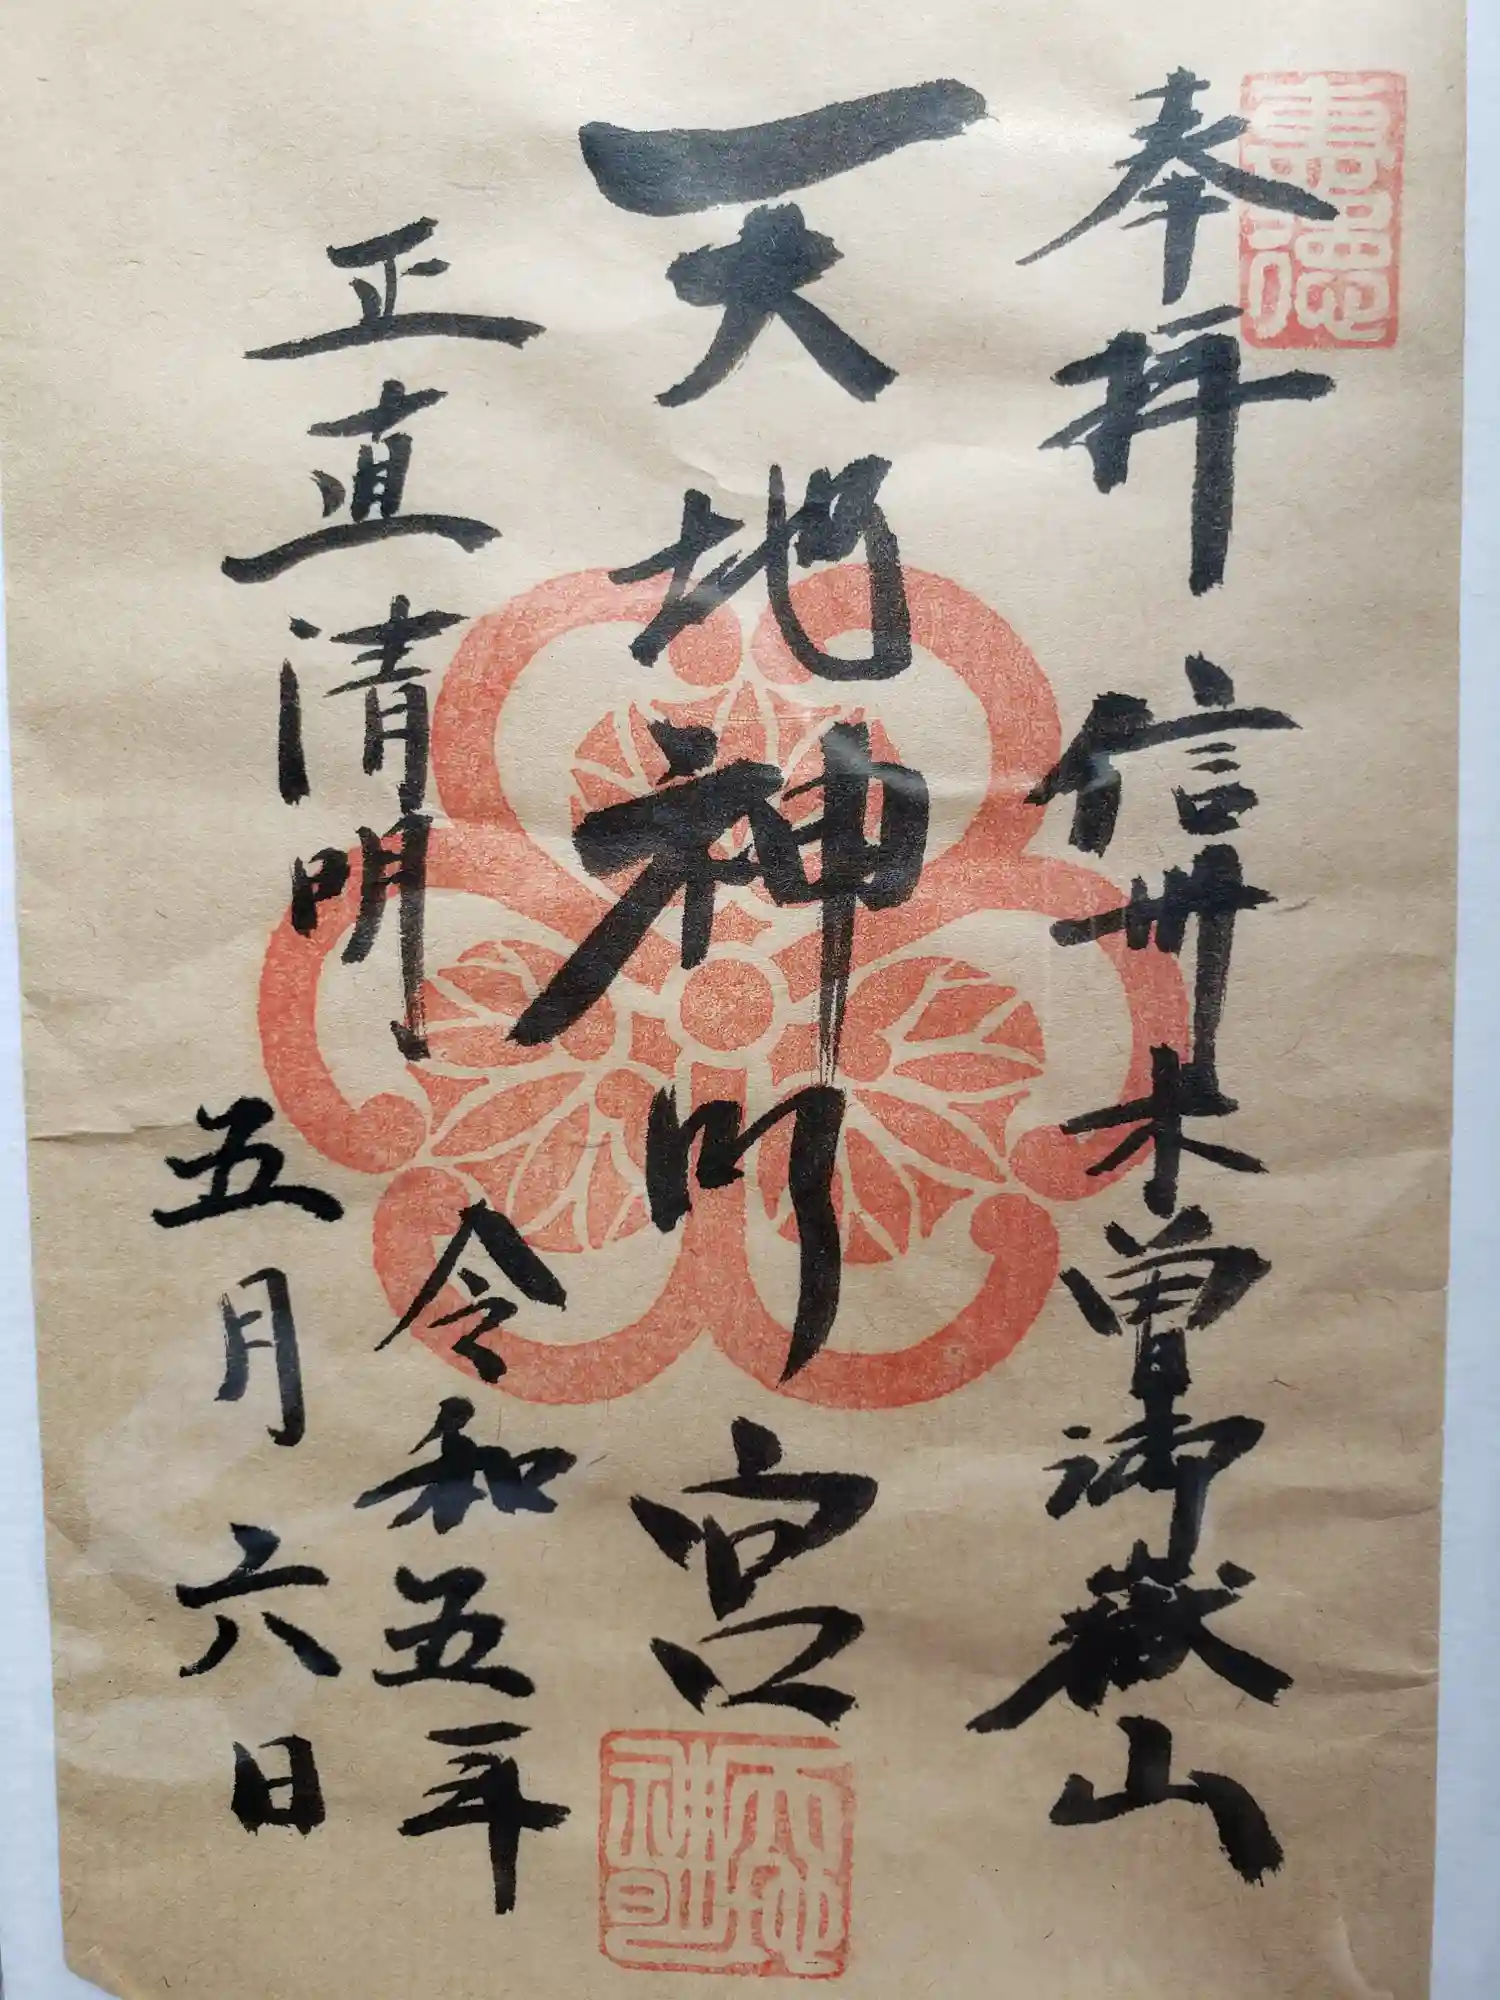 奉拝 信州木曽御嶽山
天地神明宮
正直清明
令和五年
五月六日
天地
神明